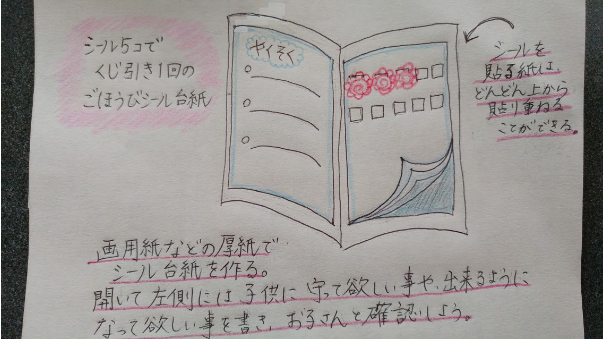 シール5コで
くじ引き1回の
ごほうびシール台紙
やくそく
シールを
貼る紙は、
どんどん上から
貼り重ねる
ことができる。
画用紙などの厚紙で
シール台紙を作る。
開いて左側には子供に守って欲しい事や、出来るように
なって欲しい事を書き、お子さんと確認しよう。